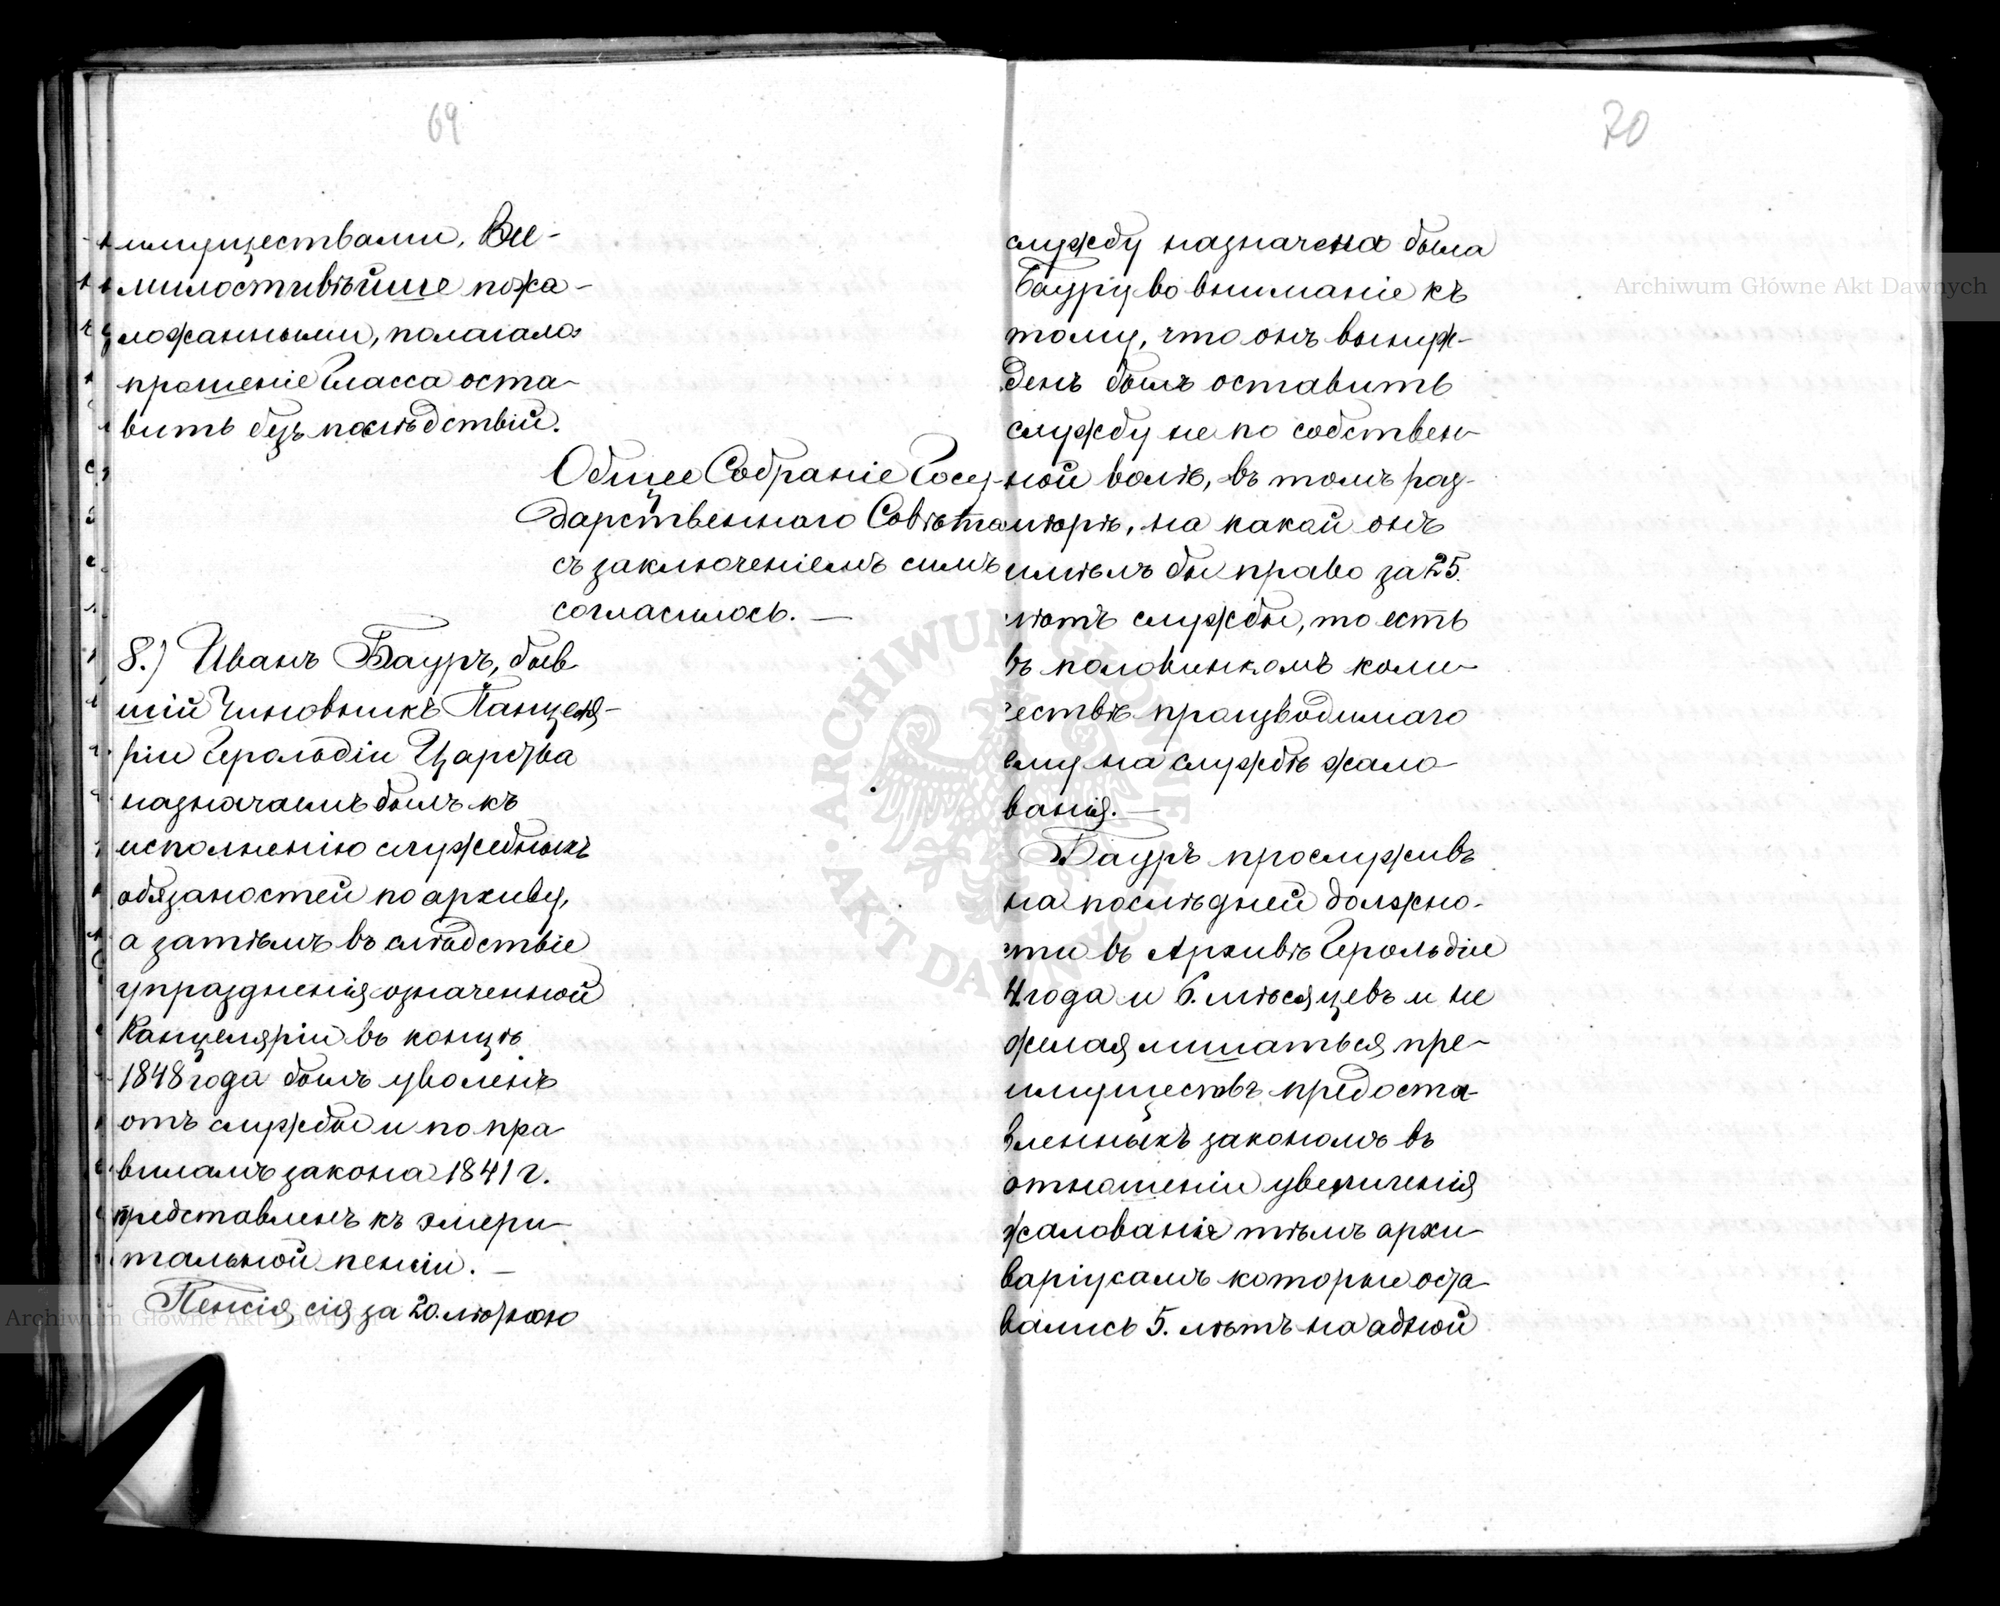 69
имуществами, Все-
милостивѣйше пожа-
лованными, полагалъ
прошеніе Гласса оста-
вить безъ послѣдствій.
Общее Собраніе Госу-
дарственнаго Совѣта
съ заключеніемъ симъ
согласилось. —
8.) Иванъ Бауръ, быв
шій Чиновникъ Канцеля-
ріи Герольдіи Царства
назначаемъ былъ къ
исполненію служебныхъ
обязаностей по архиву,
а затѣмъ въ слѣдствіе
упраздненія означенной
Канцеляріи въ концѣ
1848 года былъ уволенъ
отъ службы и по пра
виламъ закона 1841 г.
представленъ къ эмери-
тальной пенсіи. —
Пенсія сія за 20. лѣтнюю
70
службу назначена была
Бауру во вниманіе къ
тому, что онъ вынуж-
денъ былъ оставить
службу не по собствен-
ной волѣ, въ томъ раз-
мѣрѣ, на какой онъ
имѣлъ бы право за 25.
лѣтъ службы, то есть
въ половинномъ коли-
чествѣ производимаго
ему на службѣ жало-
ванія. —
Бауръ прослуживъ
на послѣдней должно-
сти въ Архивѣ Герольдіи
4 года и 6. мѣсяцевъ и не
желая лишаться пре-
имуществъ предоста-
вленныхъ закономъ въ
отношеніи увеличенія
жалованія тѣмъ архи-
варіусамъ которые оста-
вались 5. лѣтъ на одной
Archiwum Główne Akt Dawnych
Archiwum Główne Akt Dawnych
ARCHIWUM GŁÓWNE • AKT DAWNYCH